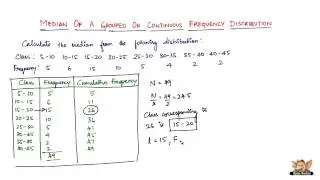 MEDIAN OF A GROUPED OR CONTINOUS FREQUENCY DISTRIBUTION
Calculate the median from the following distribution:
Class : 5-10 10-15 15-20 20-25 25-30 30-35 35-40 40-45
Frequency: 5 6 15 10 5 4 2 2
Class Frequency Cumulative Frequency
5-10 5 5
10-15 6 11
15-20 15 26
20-25 10 36
25-30 5 41
30-35 4 45
35-40 2 47
40-45 2 49
49
N = 49
N/2 = 49/2 = 24.5
Class corresponding to
26 is 15-20
l = 15, F